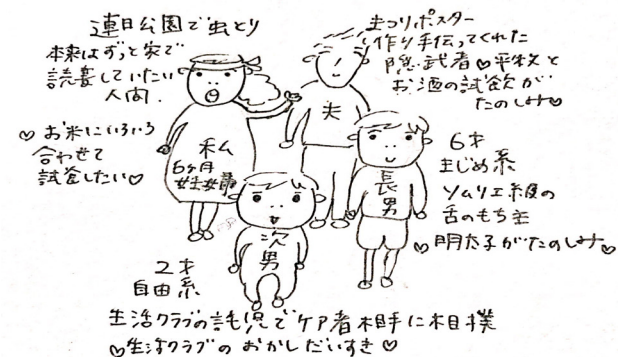 連日公園で虫とり
本来はずっと家で
読書していたい
人間.
♡お米にいろいろ
合わせて
試食したい♡
私
6ヶ月
妊婦
まつりポスター
作り手伝ってくれた
影武者♡平牧と
お酒の試飲が
たのしみ♡
夫
6才
まじめ系
ソムリエ級の
舌のもち主
♡明太子がたのしみ♡
長男
次男
2才
自由系
生活クラブの託児でケア者相手に相撲
♡生活クラブのおかしだいすき♡